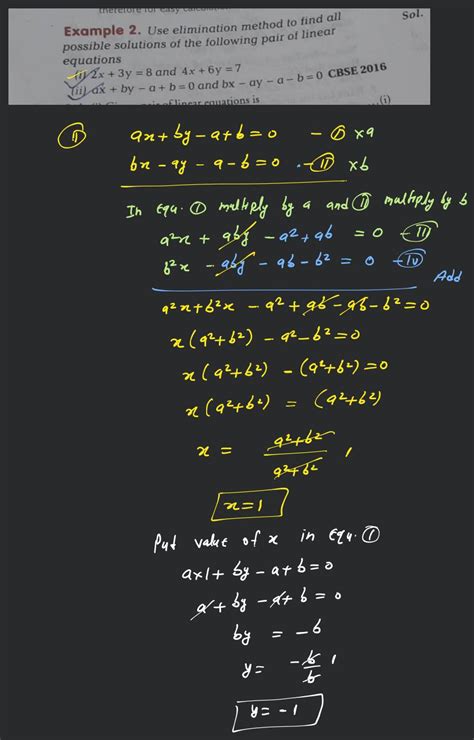 therefore for easy calculation
Sol.
Example 2. Use elimination method to find all
possible solutions of the following pair of linear
equations
(i) 2x + 3y = 8 and 4x + 6y = 7
(ii) ax + by - a + b = 0 and bx - ay - a - b = 0 CBSE 2016
of linear equations is
...(i)
(ii) ax + by - a + b = 0 - (i) ×a
bx - ay - a - b = 0 - (ii) ×b
In Equ. (i) multiply by a and (ii) multiply by b
a²x + aby - a² + ab = 0 - (iii)
b²x - aby - ab - b² = 0 - (iv)
Add
a²x + b²x - a² + ab - ab - b² = 0
x(a²+b²) - a² - b² = 0
x(a²+b²) - (a²+b²) = 0
x(a²+b²) = (a²+b²)
x = a²+b² / a²+b² 1
x = 1
Put value of x in Equ. (i)
a×1 + by - a + b = 0
a + by - a + b = 0
by = -b
y = -b / b 1
y = -1